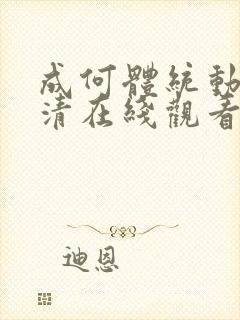 成何體統動
清在綫觀看
迪恩